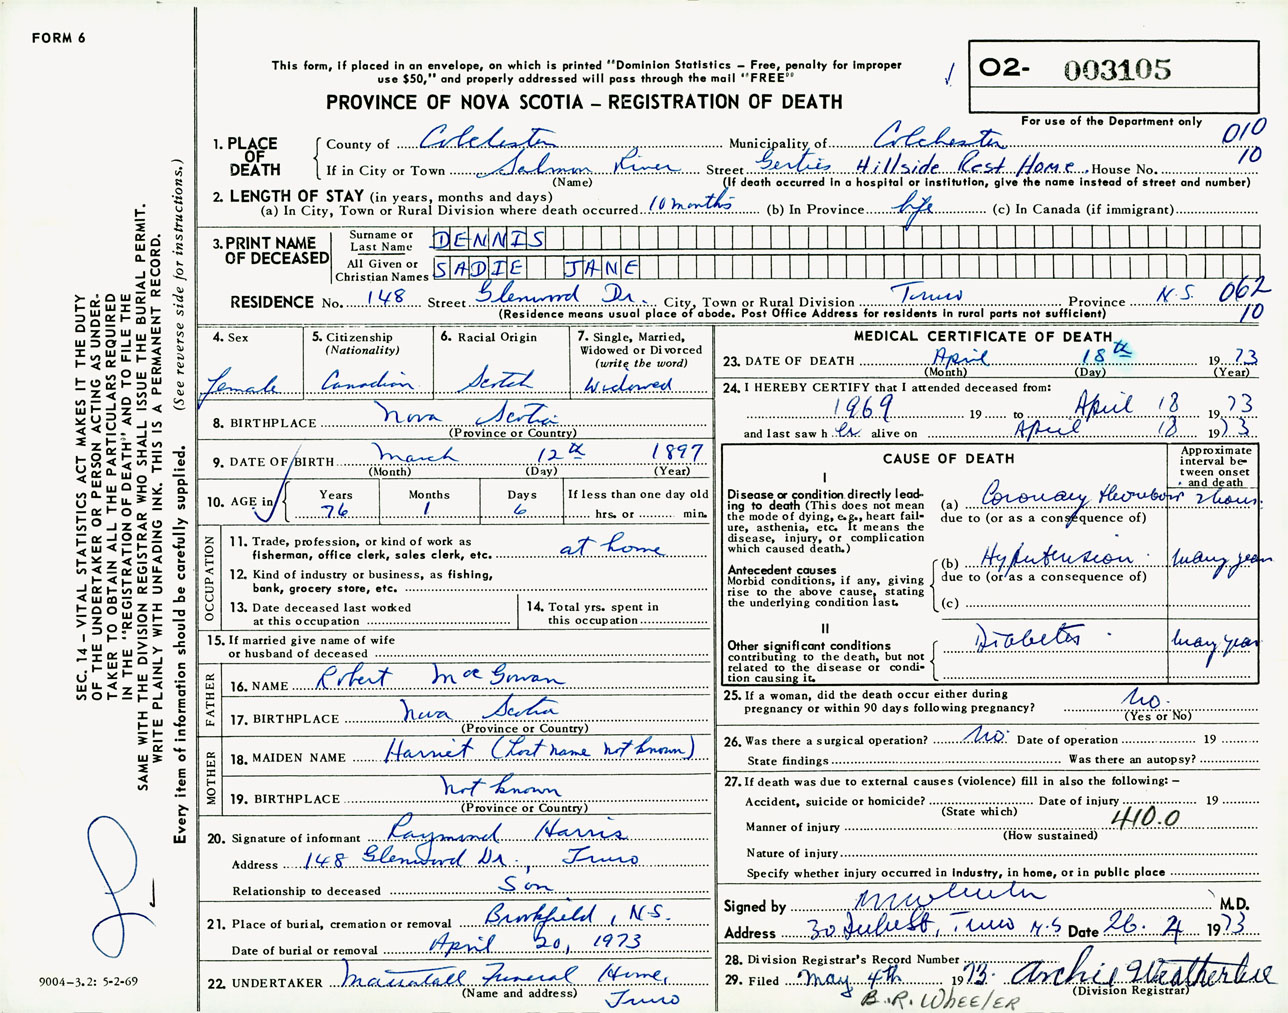 FORM 6
This form, if placed in an envelope, on which is printed "Dominion Statistics – Free, penalty for improper
use $50," and properly addressed will pass through the mail "FREE"
PROVINCE OF NOVA SCOTIA – REGISTRATION OF DEATH
O2- 003105
For use of the Department only
010
10
1. PLACE OF DEATH
County of Colchester Municipality of Colchester
If in City or Town Salmon River Street Gerties Hillside Rest Home. House No.
(Name) (If death occurred in a hospital or institution, give the name instead of street and number)
2. LENGTH OF STAY (in years, months and days)
(a) In City, Town or Rural Division where death occurred 10 months (b) In Province life (c) In Canada (if immigrant)
3. PRINT NAME OF DECEASED
Surname or Last Name DENNIS
All Given or Christian Names SADIE JANE
RESIDENCE No. 148 Street Glenwood Dr. City, Town or Rural Division Truro Province N.S. 062
(Residence means usual place of abode. Post Office Address for residents in rural parts not sufficient) 10
4. Sex
Female
5. Citizenship
(Nationality)
Canadian
6. Racial Origin
Scotch
7. Single, Married,
Widowed or Divorced
(write the word)
Widowed
8. BIRTHPLACE Nova Scotia
(Province or Country)
9. DATE OF BIRTH March 12th 1897
(Month) (Day) (Year)
10. AGE in
Years Months Days If less than one day old
76 1 6 hrs. or min.
OCCUPATION
11. Trade, profession, or kind of work as
fisherman, office clerk, sales clerk, etc. at home
12. Kind of industry or business, as fishing,
bank, grocery store, etc.
13. Date deceased last worked
at this occupation
14. Total yrs. spent in
this occupation
15. If married give name of wife
or husband of deceased
FATHER
16. NAME Robert McGowan
17. BIRTHPLACE Nova Scotia
(Province or Country)
MOTHER
18. MAIDEN NAME Harriet (Last name not known)
19. BIRTHPLACE not known
(Province or Country)
20. Signature of informant Raymond Harris
Address 148 Glenwood Dr., Truro
Relationship to deceased Son
21. Place of burial, cremation or removal Brookfield, N.S.
Date of burial or removal April 20, 1973
22. UNDERTAKER Mattatall Funeral Home,
(Name and address) Truro
MEDICAL CERTIFICATE OF DEATH
23. DATE OF DEATH April 18th 1973
(Month) (Day) (Year)
24. I HEREBY CERTIFY that I attended deceased from:
1969 19 to April 18 1973
and last saw her alive on April 18 1973
CAUSE OF DEATH
Approximate
interval be-
tween onset
and death
I
Disease or condition directly lead-
ing to death (This does not mean
the mode of dying, e.g., heart fail-
ure, asthenia, etc. It means the
disease, injury, or complication
which caused death.)
(a) Coronary thrombosis 2 hours
due to (or as a consequence of)
Antecedent causes
Morbid conditions, if any, giving
rise to the above cause, stating
the underlying condition last.
(b) Hypertension many years
due to (or as a consequence of)
(c)
II
Other significant conditions
contributing to the death, but not
related to the disease or condi-
tion causing it.
Diabetes many years
25. If a woman, did the death occur either during
pregnancy or within 90 days following pregnancy? no.
(Yes or No)
26. Was there a surgical operation? no. Date of operation 19
State findings Was there an autopsy?
27. If death was due to external causes (violence) fill in also the following: –
Accident, suicide or homicide? Date of injury 19
(State which)
Manner of injury 410.0
(How sustained)
Nature of injury
Specify whether injury occurred in industry, in home, or in public place
Signed by M.D.
Address Truro N.S Date 26. 4 1973
28. Division Registrar's Record Number
29. Filed May 4th 1973. Archie Weatherbee
(Division Registrar)
B.R. WHEELER
SEC. 14 – VITAL STATISTICS ACT MAKES IT THE DUTY
OF THE UNDERTAKER OR PERSON ACTING AS UNDER-
TAKER TO OBTAIN ALL THE PARTICULARS REQUIRED
IN THE "REGISTRATION OF DEATH" AND TO FILE THE
SAME WITH THE DIVISION REGISTRAR WHO SHALL ISSUE THE BURIAL PERMIT.
WRITE PLAINLY WITH UNFADING INK. THIS IS A PERMANENT RECORD.
Every item of information should be carefully supplied. (See reverse side for instructions.)
9004-3.2: 5-2-69